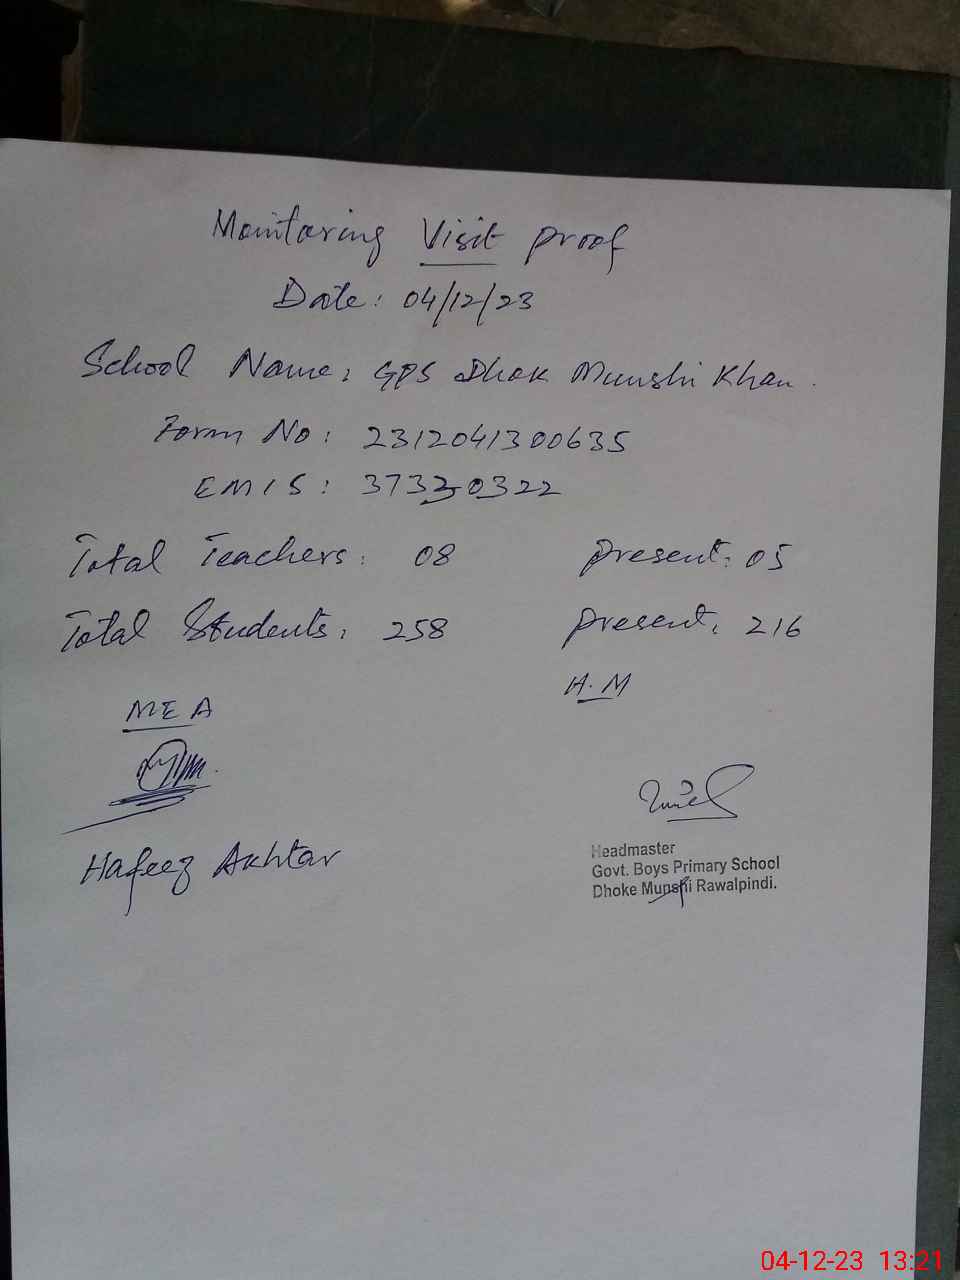 Monitoring Visit proof
Date: 04/12/23
School Name: GPS Dhok Munshi Khan.
Form No: 2312041300635
EMIS: 37330322
Total Teachers: 08 Present: 05
Total Students: 258 Present: 216
MEA
H.M
Hafeez Akhtar
Headmaster
Govt. Boys Primary School
Dhoke Munshi Rawalpindi.
04-12-23 13:21